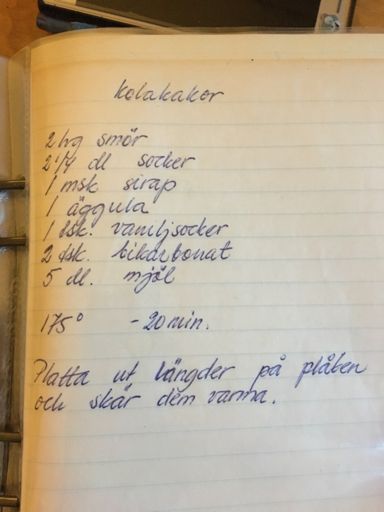 Kolakakor
2 hg smör
2 1/4 dl socker
1 msk sirap
1 äggula
1 tsk. vaniljsocker
2 tsk. bikarbonat
5 dl. mjöl
175° - 20 min.
Platta ut längder på plåten
och skär dem varma.